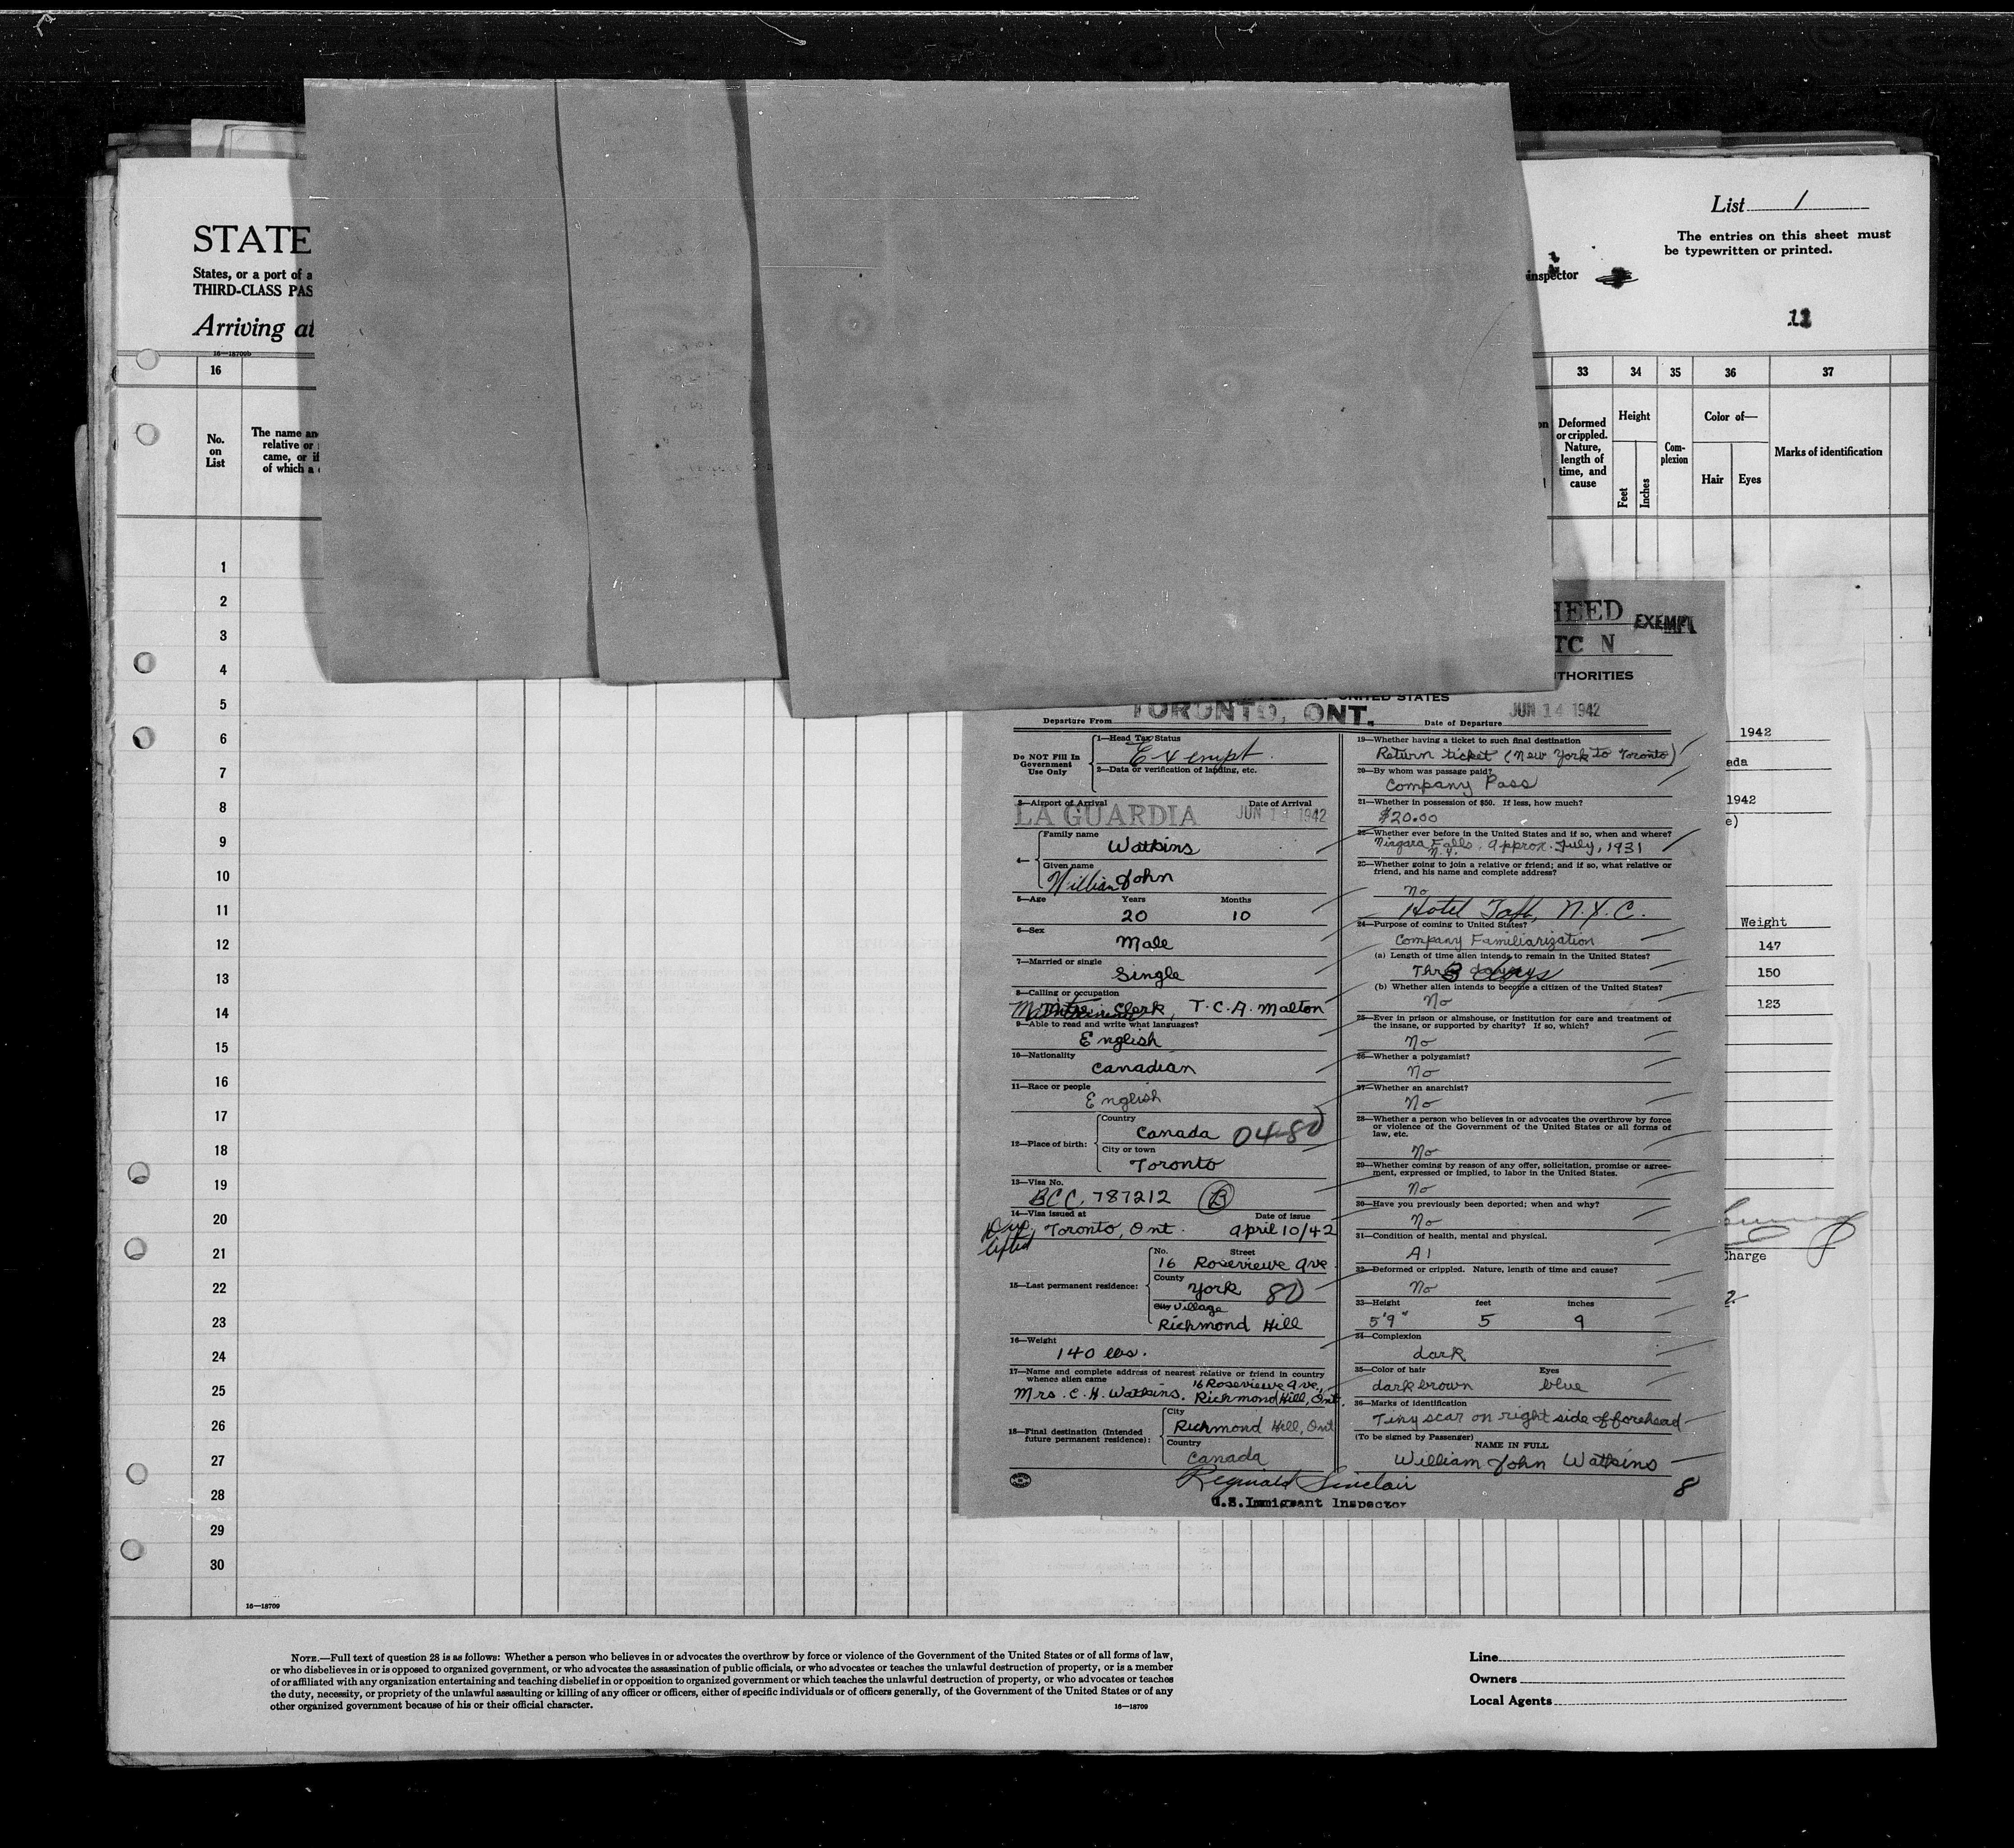 STATE
States, or a port of a
THIRD-CLASS PAS
Arriving at
16—18709b
List 1
The entries on this sheet must
be typewritten or printed.
inspector
16
33
34
35
36
37
No.
on
List
The name an
relative or
came, or if
of which a
Deformed
or crippled.
Nature,
length of
time, and
cause
Height
Feet
Inches
Com-
plexion
Color of—
Hair
Eyes
Marks of identification
1
2
3
4
5
6
7
8
9
10
11
12
13
14
15
16
17
18
19
20
21
22
23
24
25
26
27
28
29
30
16—18709
HEED
EXEMPT
TC N
THORITIES
UNITED STATES
Departure From TORONTO, ONT. Date of Departure JUN 14 1942
Do NOT Fill In
Government
Use Only
1—Head Tax Status
Exempt
2—Data or verification of landing, etc.
3—Airport of Arrival Date of Arrival
LA GUARDIA JUN 1 1942
4—
Family name
Watkins
Given name
William John
5—Age Years Months
20 10
6—Sex
Male
7—Married or single
Single
8—Calling or occupation
Clerk, T.C.A. Malton
9—Able to read and write what languages?
English
10—Nationality
Canadian
11—Race or people
English
12—Place of birth:
Country
Canada 04-80
City or town
Toronto
13—Visa No.
BCC. 787212 B
14—Visa issued at Date of issue
Toronto, Ont. April 10/42
lifted
15—Last permanent residence:
No. Street
16 Roseviewe Ave
County
York 80
City Village
Richmond Hill
16—Weight
140 lbs.
17—Name and complete address of nearest relative or friend in country
whence alien came
16 Roseviewe Ave.,
Mrs. C. H. Watkins. Richmond Hill, Ont.
18—Final destination (Intended
future permanent residence):
City
Richmond Hill, Ont
Country
Canada
Reginald Sinclair
U.S. Immigrant Inspector
19—Whether having a ticket to such final destination
Return ticket (New York to Toronto)
20—By whom was passage paid?
Company Pass
21—Whether in possession of $50. If less, how much?
$20.00
22—Whether ever before in the United States and if so, when and where?
Niagara Falls. approx. July, 1931
N.Y.
23—Whether going to join a relative or friend; and if so, what relative or
friend, and his name and complete address?
No
Hotel Taft, N.Y.C.
24—Purpose of coming to United States?
Company Familiarization
(a) Length of time alien intends to remain in the United States?
3 days
(b) Whether alien intends to become a citizen of the United States?
No
25—Ever in prison or almshouse, or institution for care and treatment of
the insane, or supported by charity? If so, which?
No
26—Whether a polygamist?
No
27—Whether an anarchist?
No
28—Whether a person who believes in or advocates the overthrow by force
or violence of the Government of the United States or all forms of
law, etc.
No
29—Whether coming by reason of any offer, solicitation, promise or agree-
ment, expressed or implied, to labor in the United States.
No
30—Have you previously been deported; when and why?
No
31—Condition of health, mental and physical.
A1
32—Deformed or crippled. Nature, length of time and cause?
No
33—Height feet inches
5'9" 5 9
34—Complexion
dark
35—Color of hair Eyes
dark brown blue
36—Marks of identification
Tiny scar on right side of forehead
(To be signed by Passenger)
NAME IN FULL
William John Watkins
8
1942
ada
1942
e)
Weight
147
150
123
harge
NOTE.—Full text of question 28 is as follows: Whether a person who believes in or advocates the overthrow by force or violence of the Government of the United States or of all forms of law,
or who disbelieves in or is opposed to organized government, or who advocates the assassination of public officials, or who advocates or teaches the unlawful destruction of property, or is a member
of or affiliated with any organization entertaining and teaching disbelief in or opposition to organized government or which teaches the unlawful destruction of property, or who advocates or teaches
the duty, necessity, or propriety of the unlawful assaulting or killing of any officer or officers, either of specific individuals or of officers generally, of the Government of the United States or of any
other organized government because of his or their official character.
16—18709
Line
Owners
Local Agents